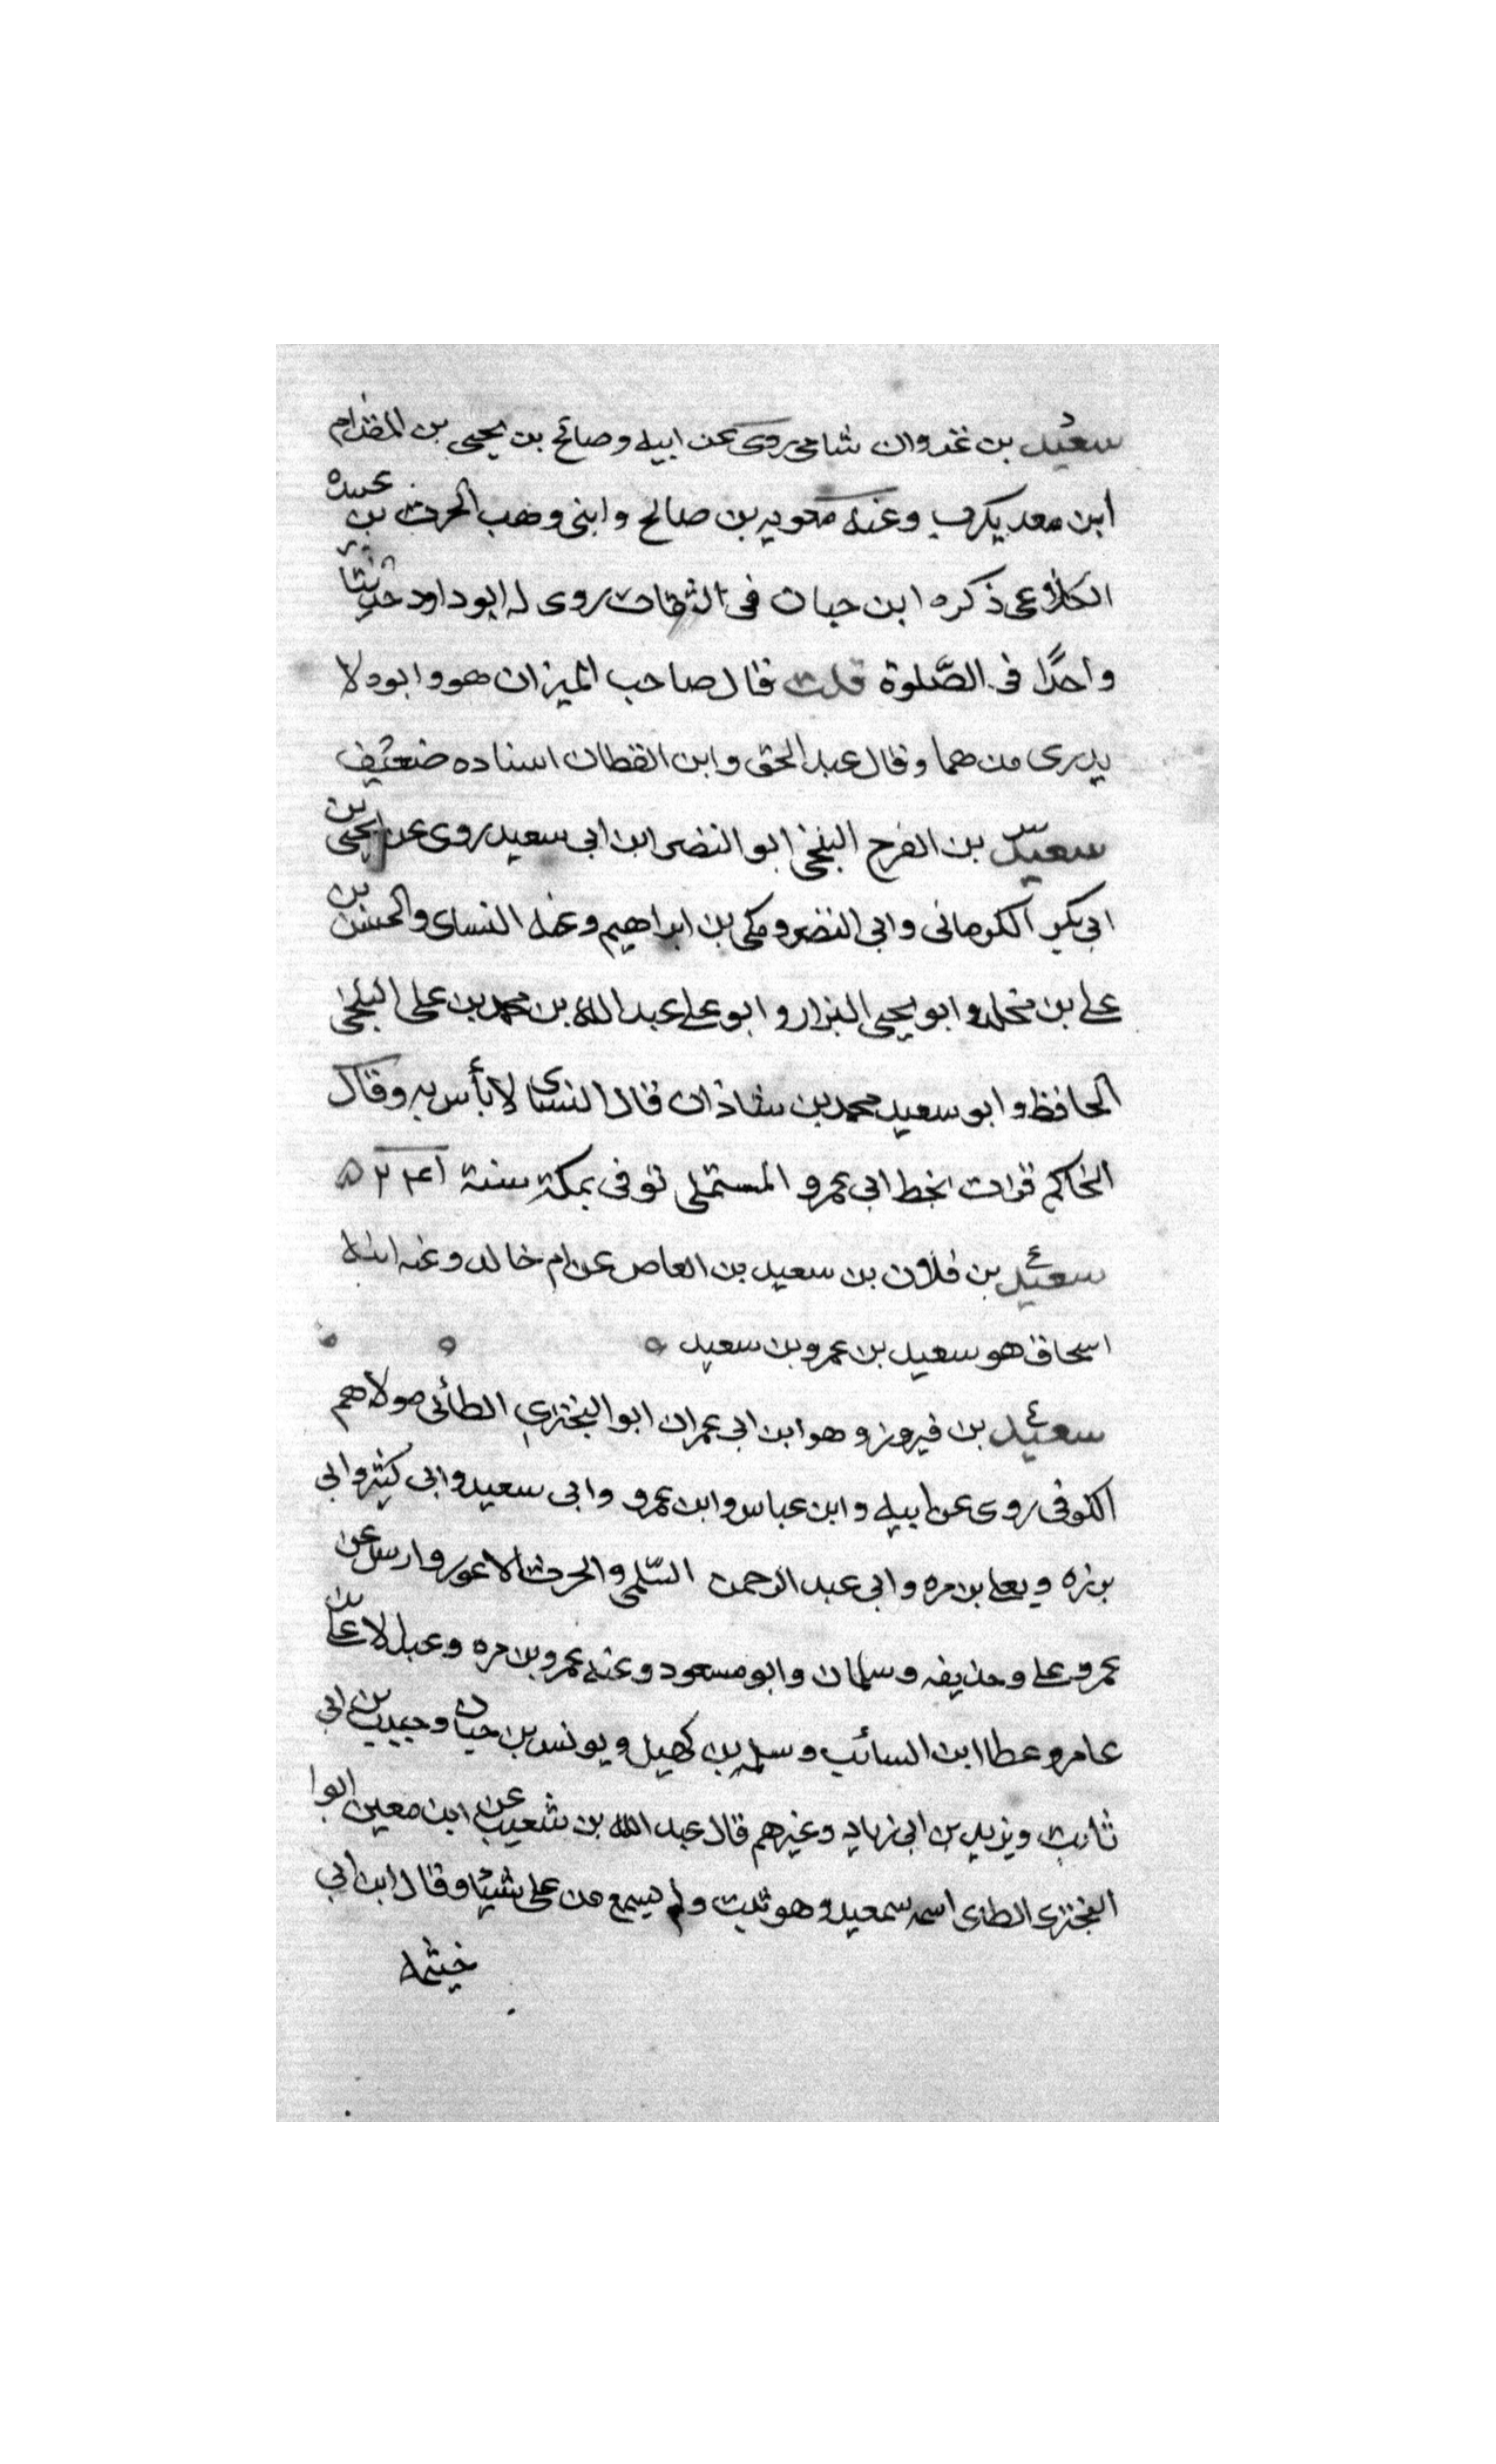 سعيد بن غزوان شامى روى عن ابيه وصالح بن يحيى بن المقدام
ابن معد يكرب وعنه معويه بن صالح وابنى وهب الحرث بن عبيده
الكلاعى ذكره ابن حبان فى الثقات روى له ابو داود حديثا
واحدًا فى الصّلوة قلت قال صاحب الميزان هو وابوه لا
يدرى من هما وقال عبد الحق وابن القطان اسناده ضعيف
سعيد بن الفرج البلخى ابو النضر ابن ابى سعيد روى عن يحيى بن
ابى بكير الكرمانى وابى النضر ومكى بن ابراهيم وعنه النساى والحسن بن
على بن مخلد وابو يحيى البزار وابو على عبد الله بن محمد بن على البلخى
الحافظ وابو سعيد محمد بن شاذان قال النساى لا بأس به وقال
الحاكم قرات بخط ابى عمرو المستملى توفى بمكة سنة ٢٤١
سعيد بن فلان بن سعيد بن العاص عن ام خالد وعنه ابنه
اسحاق هو سعيد بن عمرو بن سعيد
سعيد بن فيروز وهو ابن ابى عمران ابو البخترى الطائى مولاهم
الكوفى روى عن ابيه وابن عباس وابن عمرو وابى سعيد وابى كبشه وابى
برزه ويعلى بن مره وابى عبد الرحمن السّلمى والحرث الاعور وارسل عن
عمرو على وحذيفه وسلمان وابو مسعود وعنه عمرو بن مره وعبد الاعلى بن
عامر وعطا ابن السائب وسلمه بن كهيل ويونس بن حبان وحبيب بن ابى
ثابت ويزيد بن ابى زياد وغيرهم قال عبد الله بن شعيب عن ابن معين ابوا
البخترى الطاى اسمه سعيد وهو ثبت ولم يسمع من على شيئا وقال ابن ابى
خيثمه